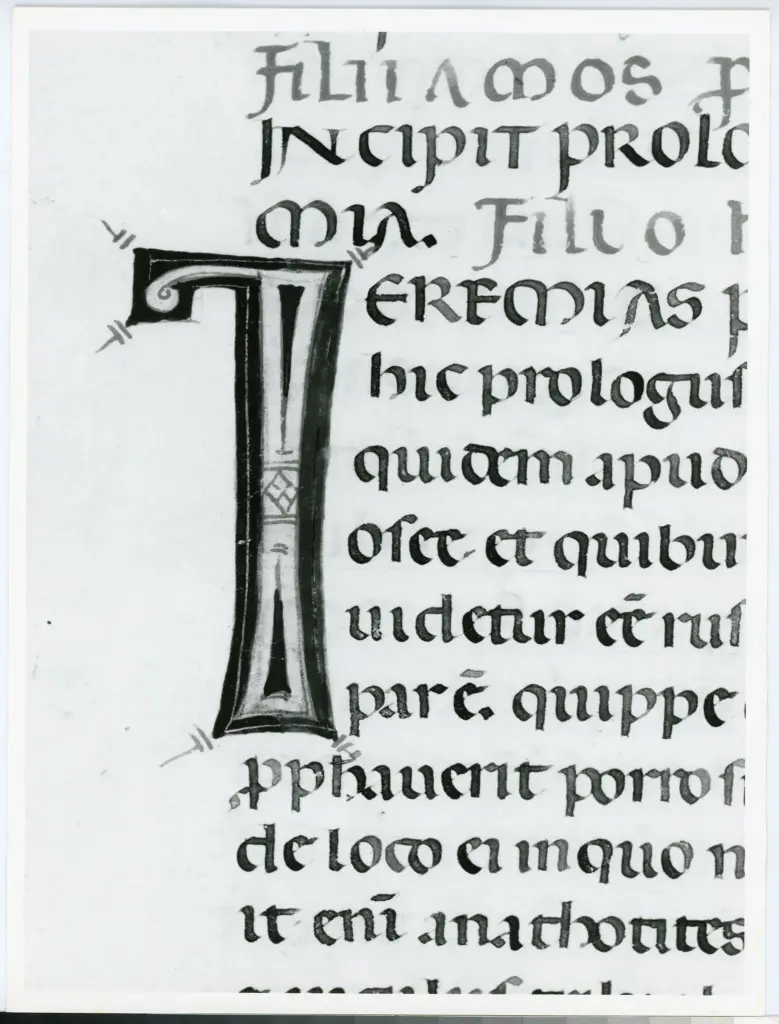 Filii amos ꝓ
INCIPIT PROLO
MIA. Filio h
IEREMIAS p
hic prologuſ
quidem apud
oſee et quibuſ
uidetur eē ruſ
parē. quippe
ꝓphauerit porro ſi
de loco ei in quo n
it enī anathotites